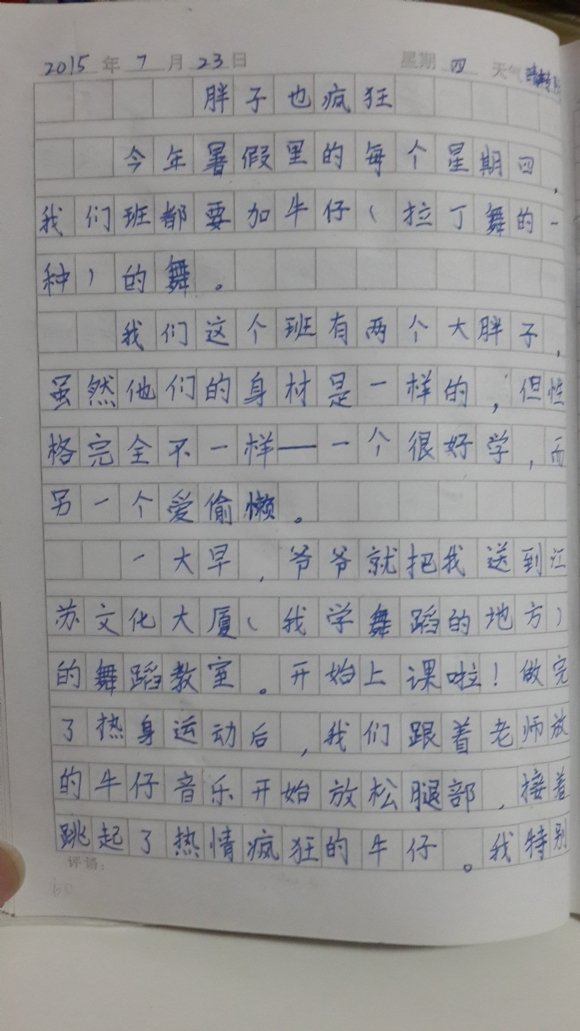 2015年7月23日 星期四 天气
胖子也疯狂
今年暑假里的每个星期四，
我们班都要加牛仔（拉丁舞的一
种）的舞。
我们这个班有两个大胖子，
虽然他们的身材是一样的，但性
格完全不一样——一个很好学，而
另一个爱偷懒。
一大早，爷爷就把我送到江
苏文化大厦（我学舞蹈的地方）
的舞蹈教室。开始上课啦！做完
了热身运动后，我们跟着老师放
的牛仔音乐开始放松腿部，接着
跳起了热情疯狂的牛仔。我特别
评语：